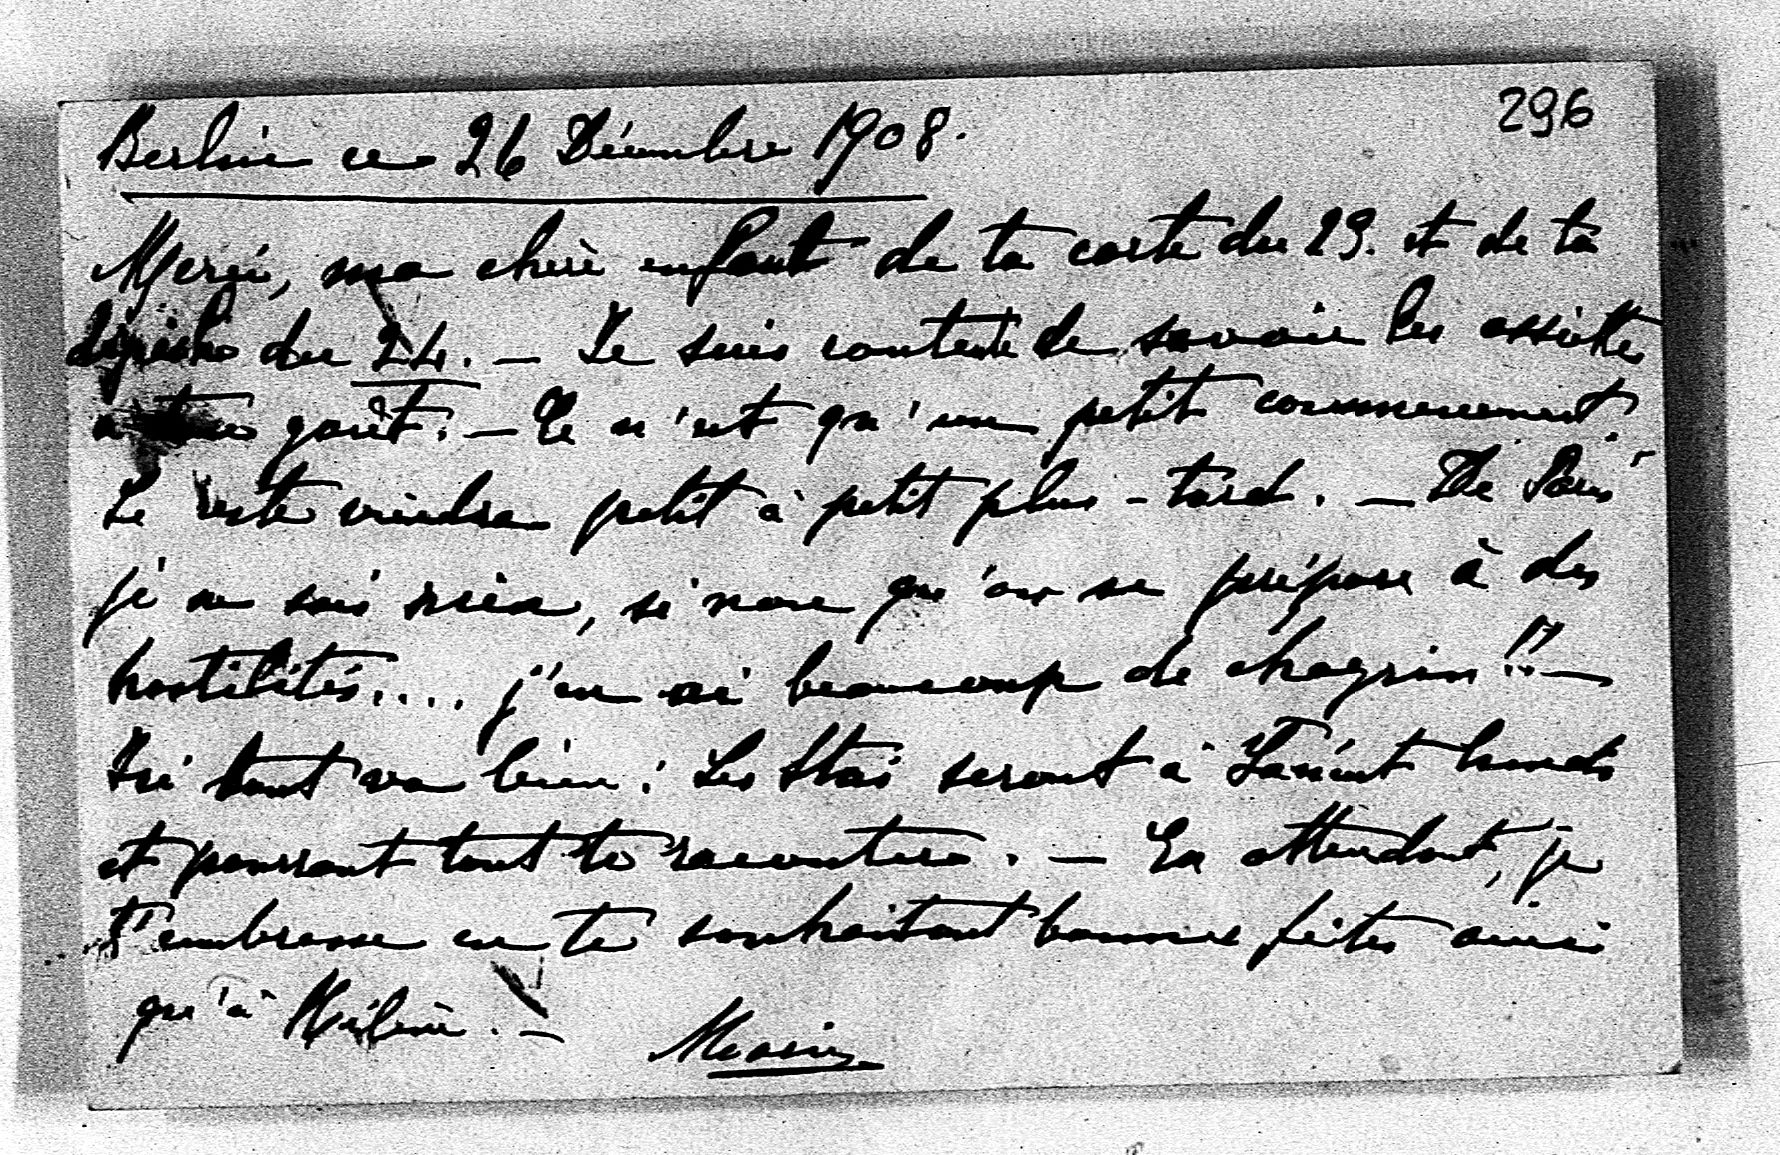 296
Berlin ce 26 Décembre 1908.
Merci, ma chère enfant de ta carte du 23. et de ta
dépêche du 24. — Je suis contente de savoir les assiettes
a goût. — Ce n'est qu'un petit commencement.
Le reste viendra petit à petit plus-tard. — De Paris
je ne sais rien, si non qu'on se prépare à des
hostilités.... j'en ai beaucoup de chagrin!! —
Ici tout va bien: Les seront à lundi
et pourront tout te raconter. — En attendant, je
t'embrasse en te souhaitant bonnes fêtes ainsi
qu'à Hélène. —